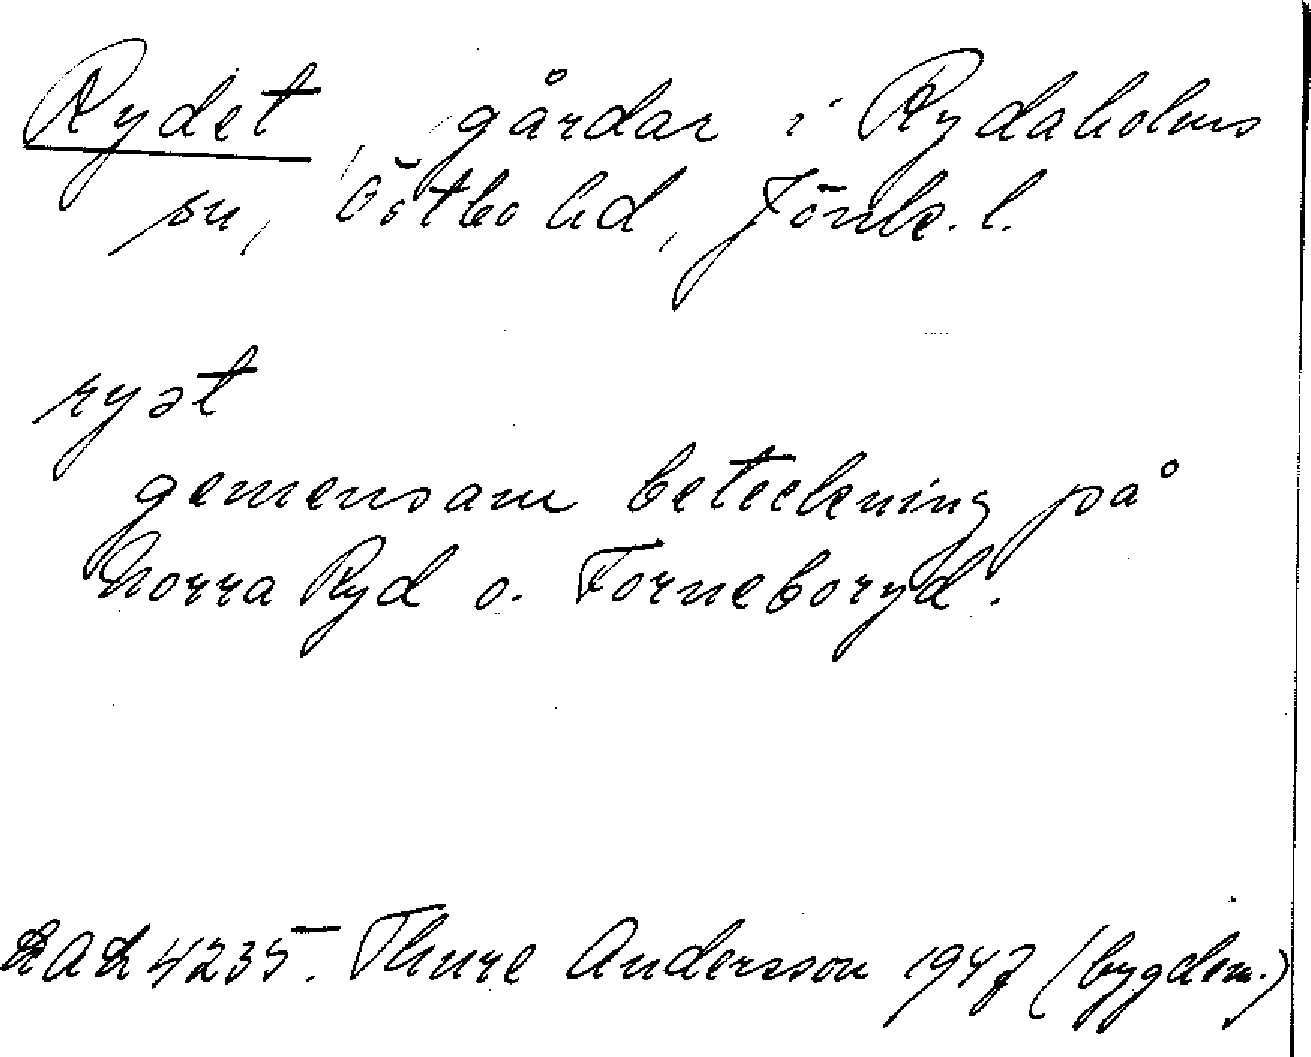 Rydet, gårdar i Rydaholms
sn, Östbo hd, Jönk. l.
ryət
gemensam beteckning på
Norra Ryd o. Forneboryd.
4235. Thure Andersson 1947 (bygdem.)